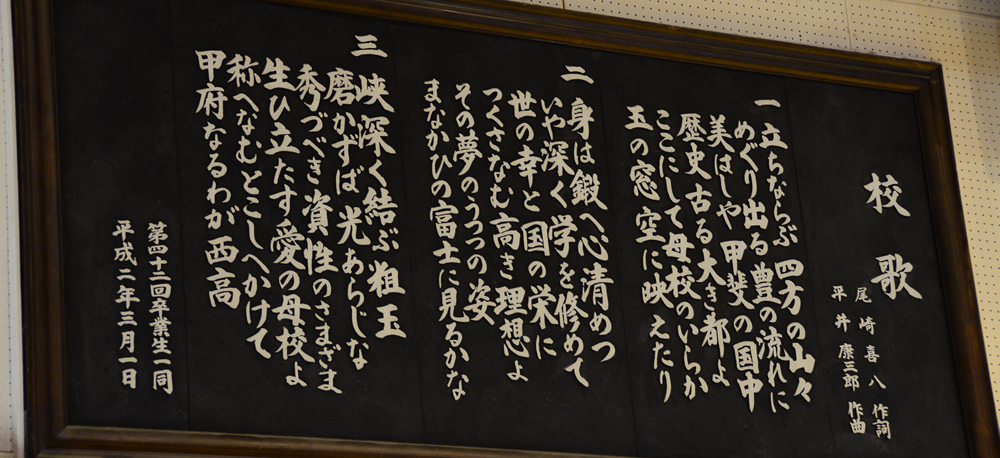 校歌
尾崎喜八 作詞
平井康三郎 作曲
一 立ちならぶ 四方の山々
めぐり出る 豊の流れに
美はしや 甲斐の国中
歴史古る 大き都よ
ここにして 母校のいらか
玉の窓 空に映えたり
二 身は鍛へ 心清めつ
いや深く 学を修めて
世の幸と 国の栄に
つくさなむ 高き理想よ
その夢の うつつの姿
まなかひの 富士に見るかな
三 峡深く 結ぶ粗玉
磨かずば 光あらじな
秀づべき 資性のさまざま
生ひ立たす 愛の母校よ
称へなむ とこしへかけて
甲府なる わが西高
第四十二回卒業生一同
平成二年三月一日